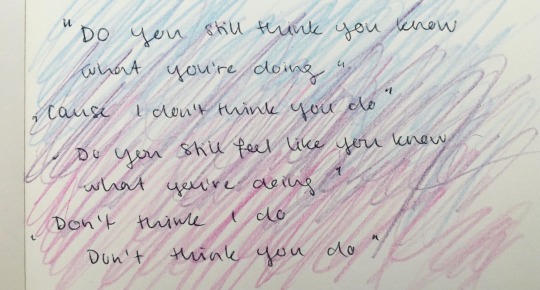 "Do you still think you know
what you're doing"
, Cause I don't think you do"
Do you still feel like you know
what you're doing"
Don't think I do
Don't think you do"